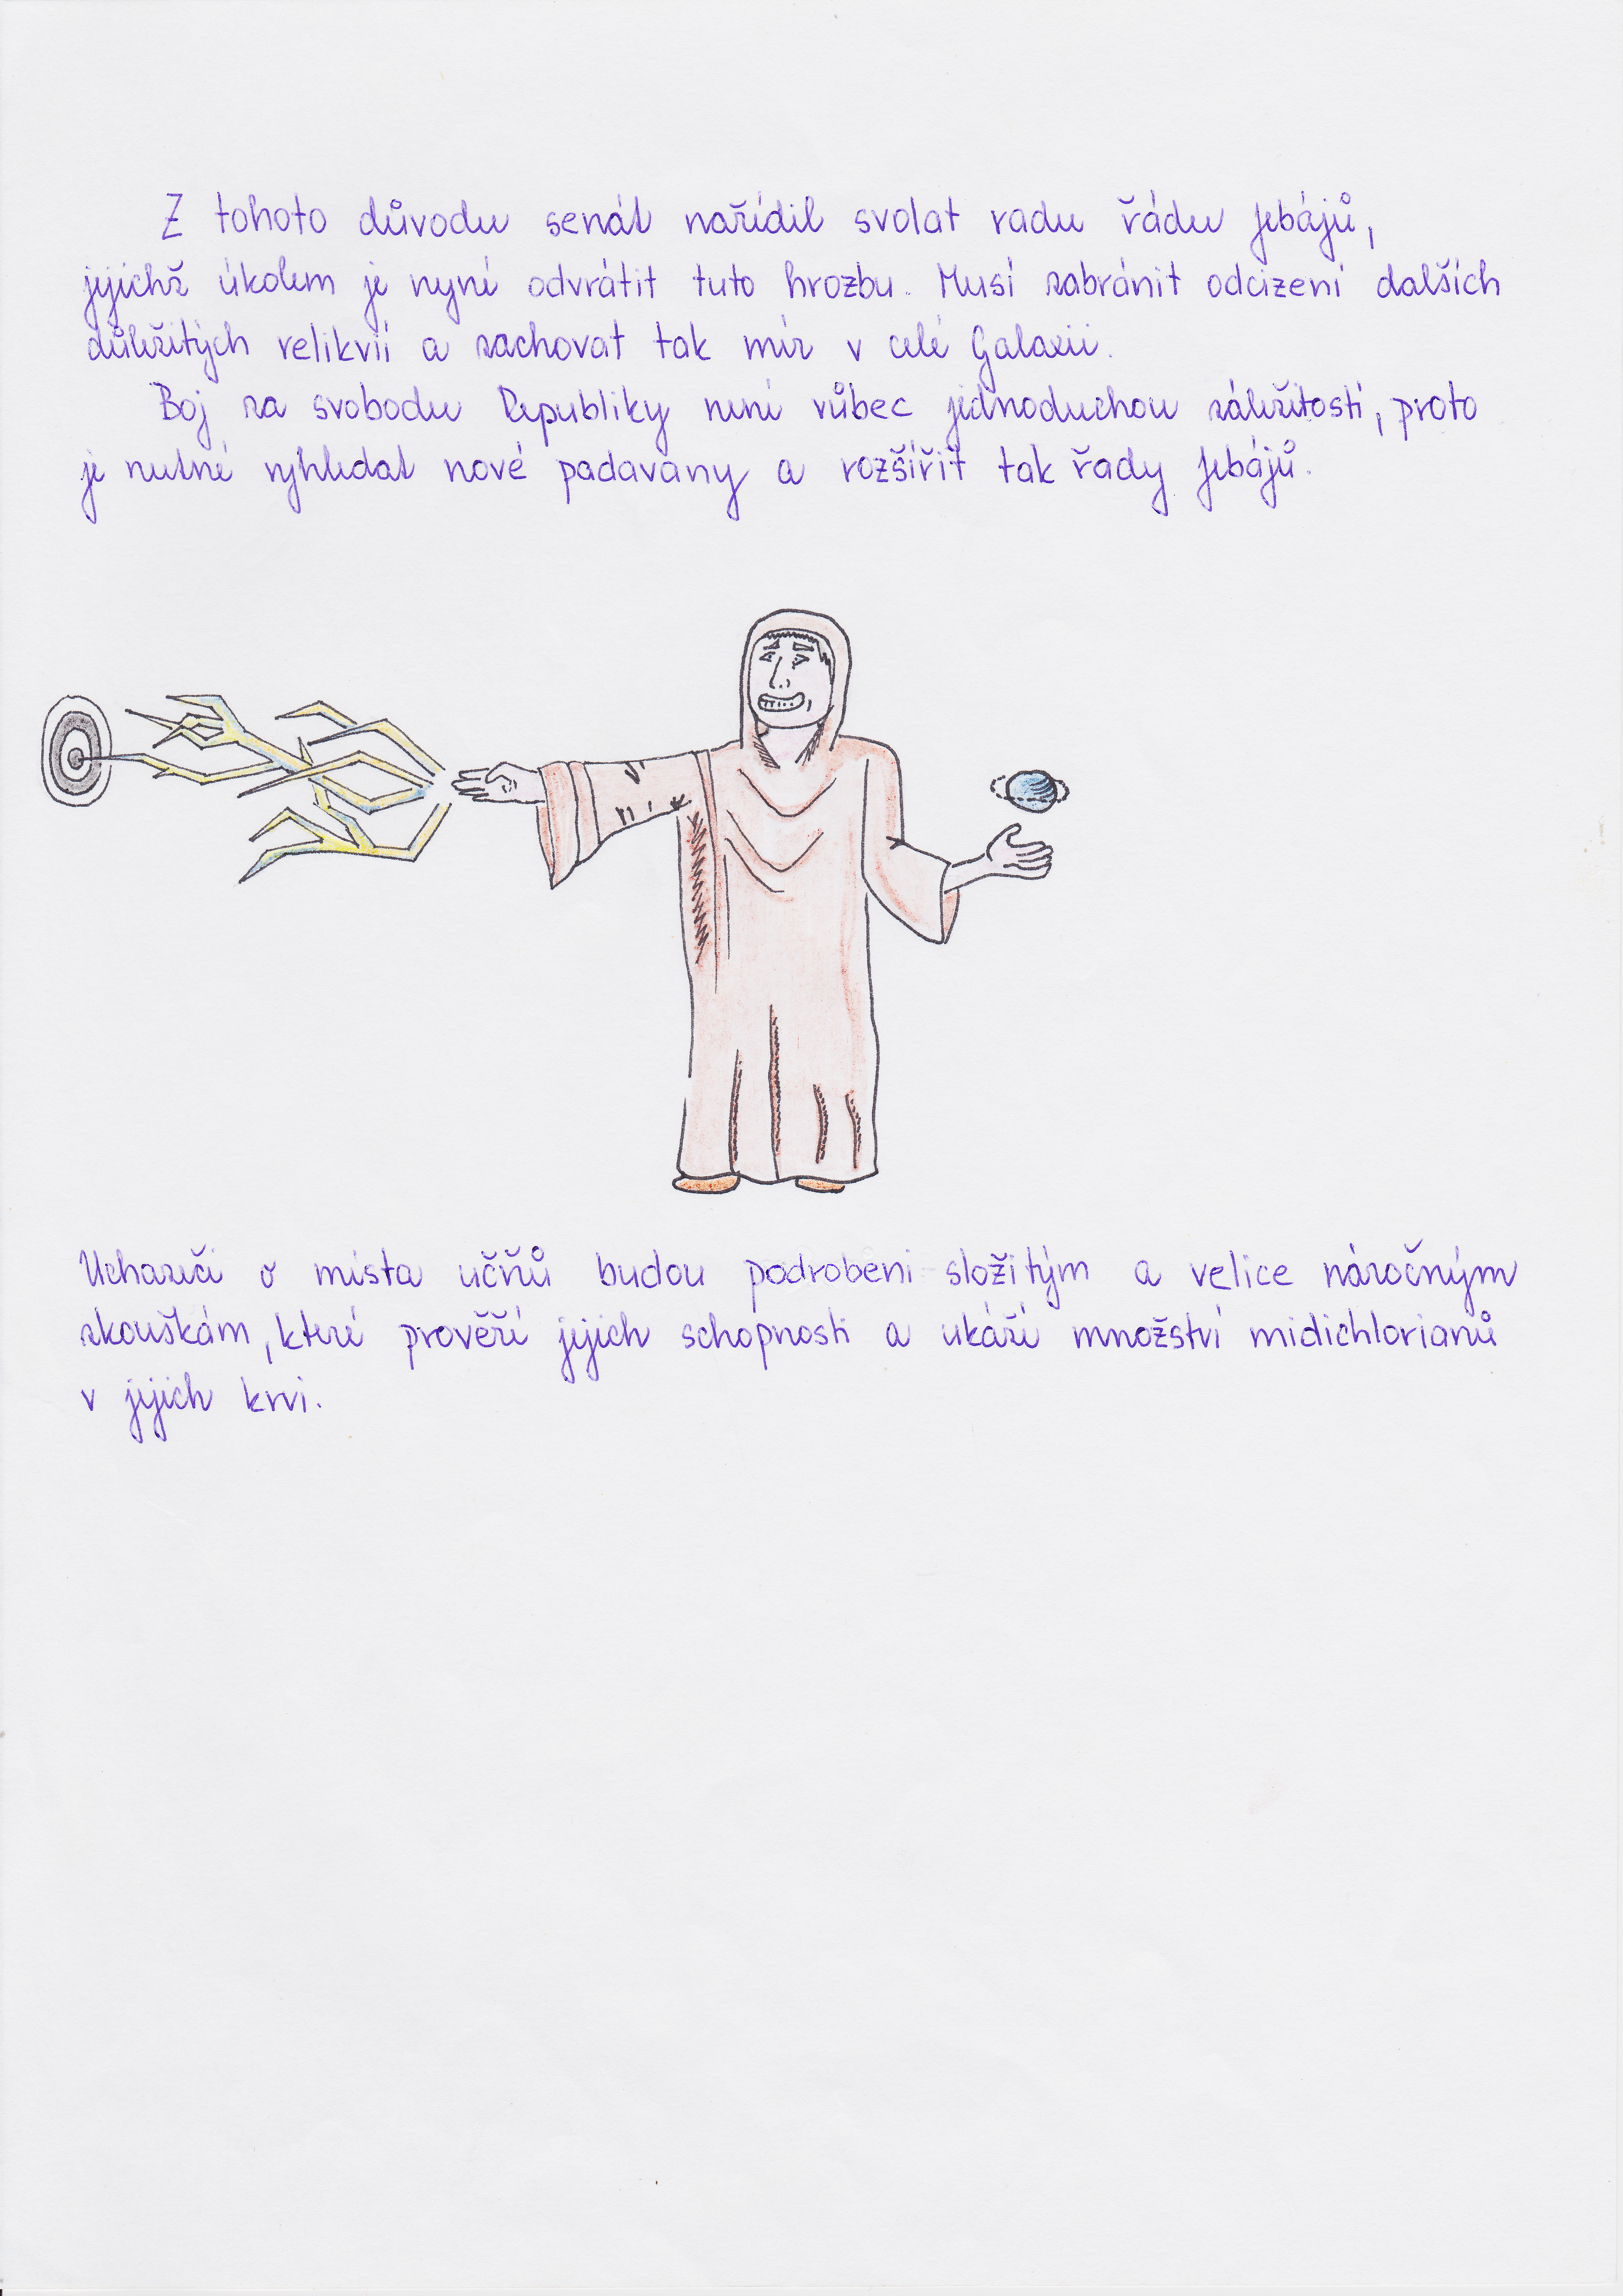 Z tohoto důvodu senát nařídil svolat radu řádu Jebájů,
jejichž úkolem je nyní odvrátit tuto hrozbu. Musí zabránit odcizení dalších
důležitých relikvií a zachovat tak mír v celé Galaxii.
Boj za svobodu Republiky není vůbec jednoduchou záležitostí, proto
je nutné vyhledat nové padavany a rozšířit tak řady Jebájů.
Uchazeči o místa učňů budou podrobeni složitým a velice náročným
zkouškám, které prověří jejich schopnosti a ukáží množství midichlorianů
v jejich krvi.